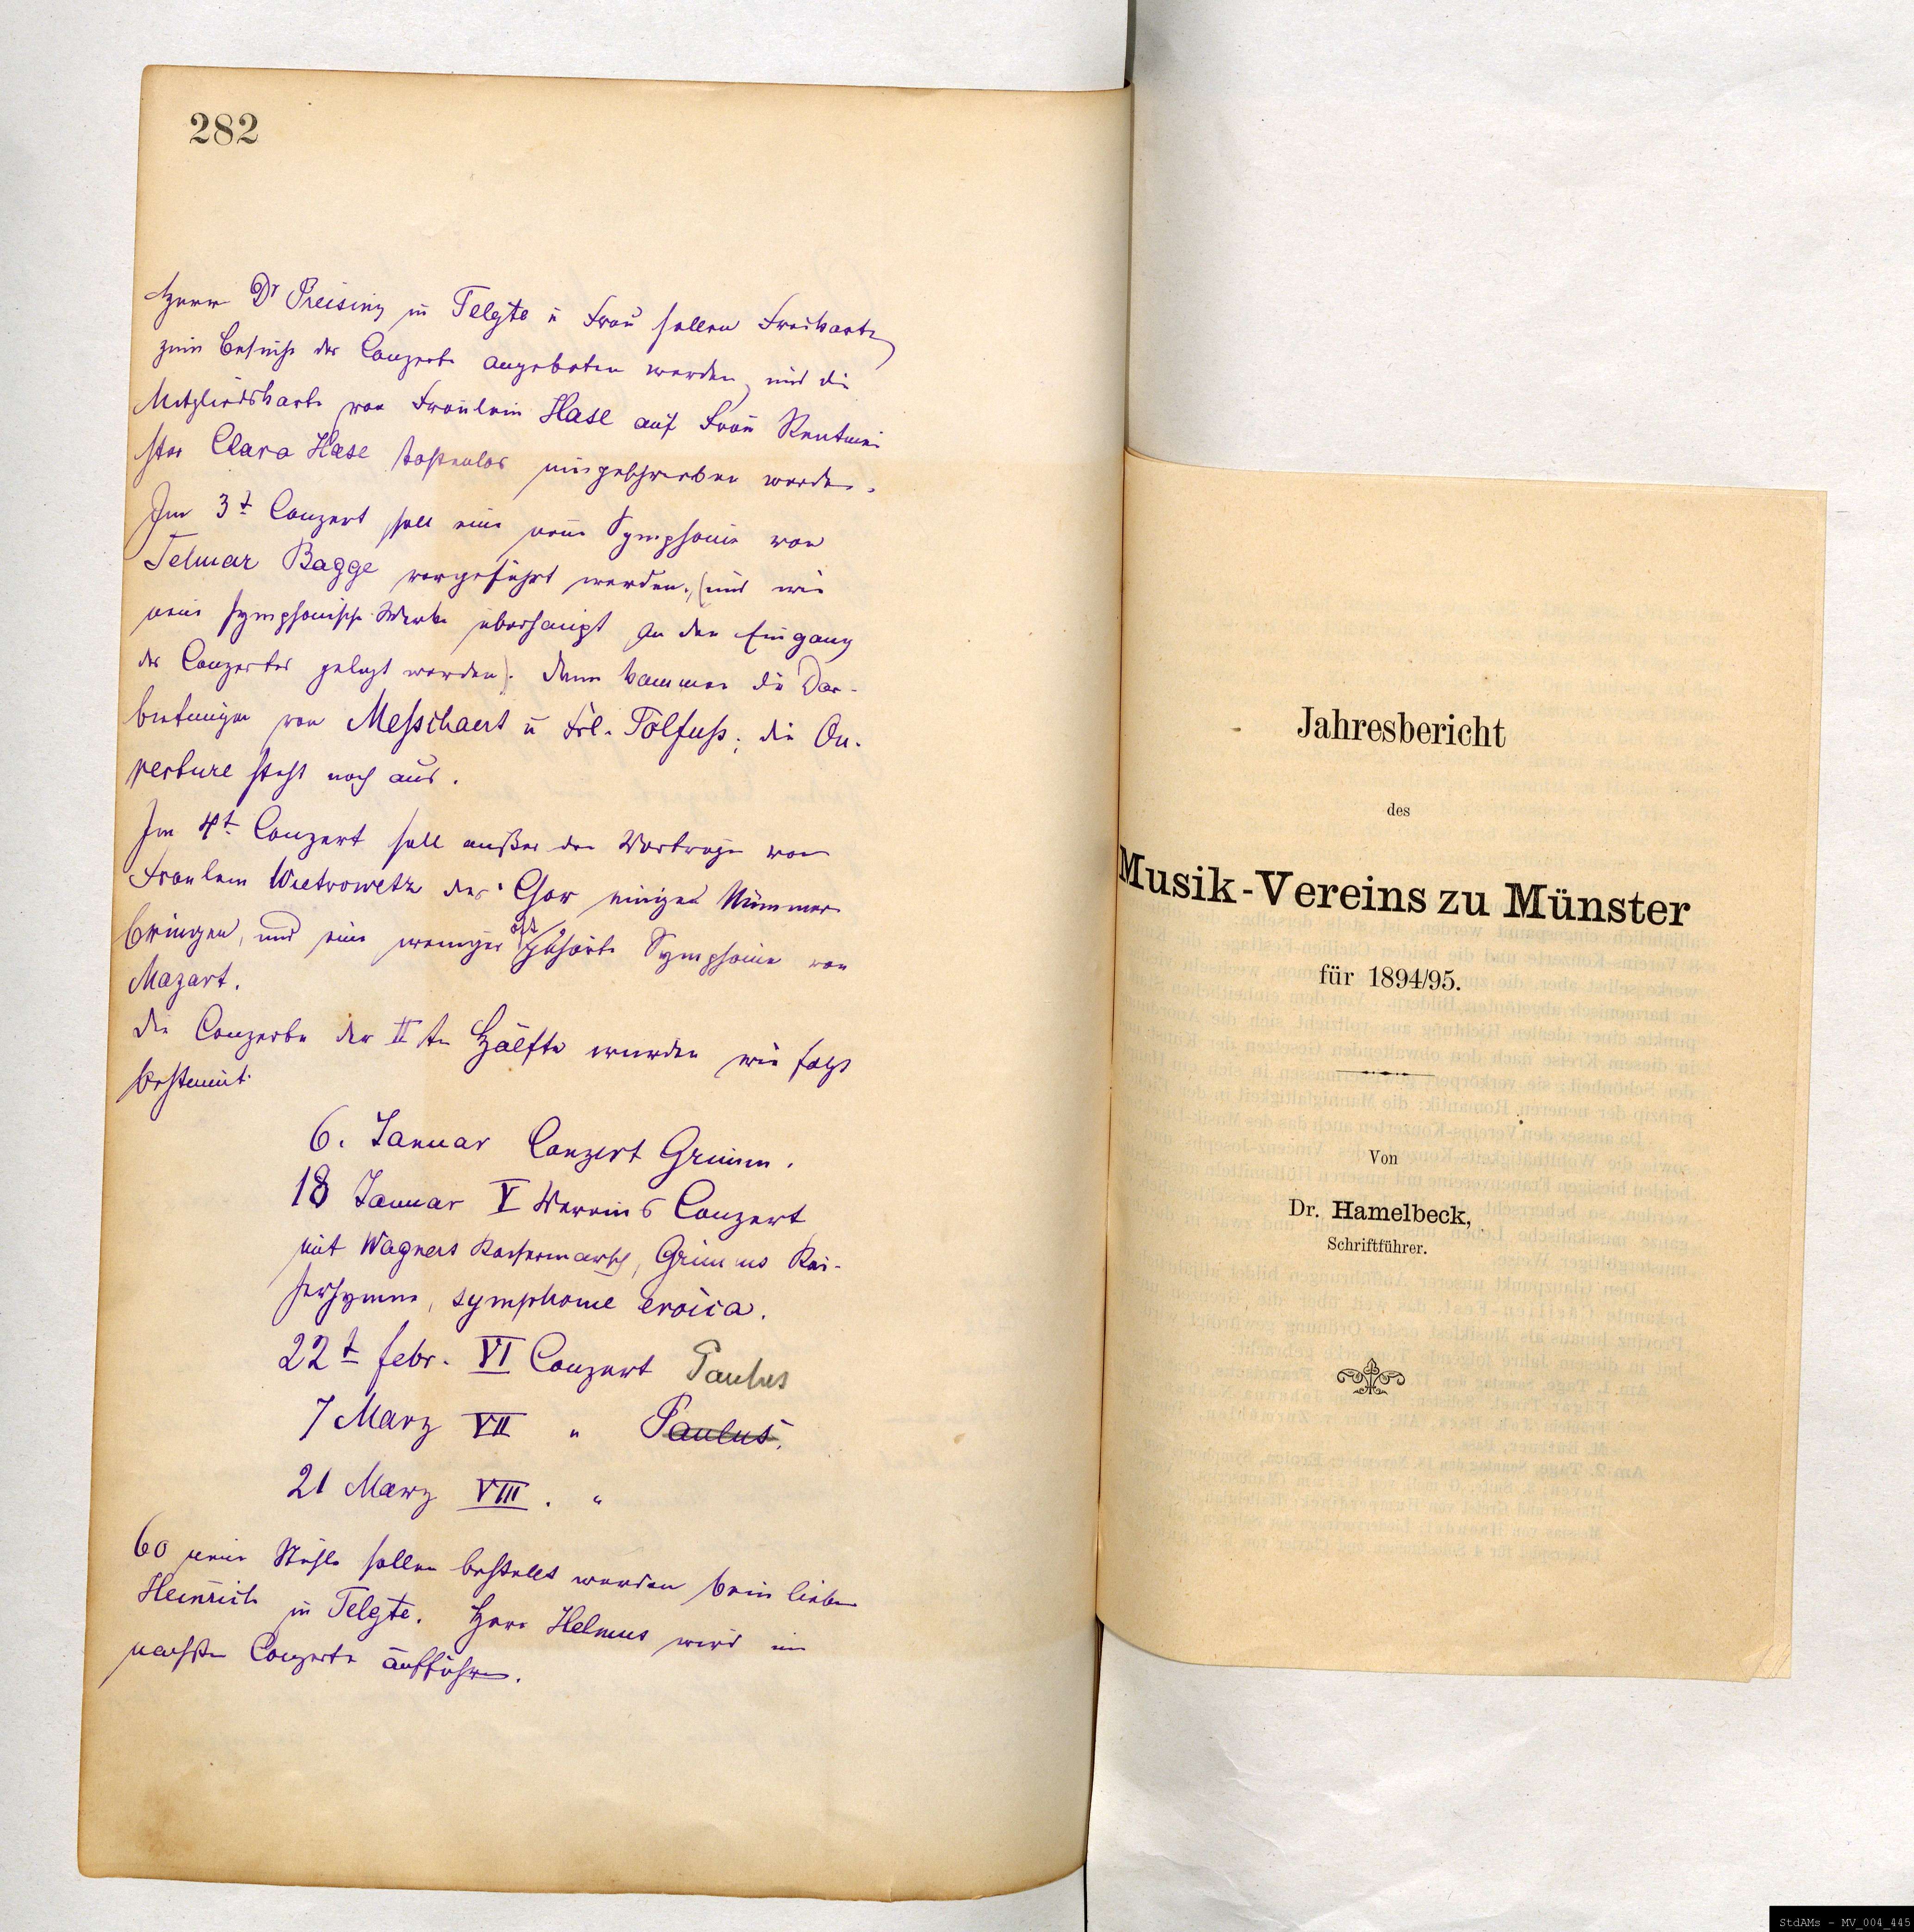 282
Herrn Dr Preising in Telgte u Frau sollen Freikarten
zum Besuche der Conzerte angeboten werden, und die
Mitgliedskarte von Fräulein Hase auf Frau Rentmei
ster Clara Hase kostenlos umgeschrieben werden.
Im 3t Conzert soll eine neue Symphonie von
Selmar Bagge vorgeführt werden, (und wie
neue symphonische Werke überhaupt an den Eingang
des Conzertes gelegt werden). Dann kommen die Dar-
bietungen von Messchaert u Frl. Polfuss; die Ou-
verture steht noch aus.
Im 4t Conzert soll außer den Vorträgen von
Fraulein Wietrowetz der Chor einige Nummern
bringen, und eine weniger oft gehörte Symphonie von
Mozart.
Die Conzerte der II ten Hälfte wurden wie folgt
bestimmt
6. Januar Conzert Grimm.
18 Januar V Vereins Conzert
mit Wagners Kaisermarsch, Grimms Kai-
serhymne, symphonie eroica.
22t febr. VI Conzert Paulus
7 März VII " Paulus.
21 März VIII. "
60 neue Stühle sollen bestellt werden beim lieben
Heinrich in Telgte. Herr Helmus wird im
nächsten Conzerte aufführen.
Jahresbericht
des
Musik-Vereins zu Münster
für 1894/95.
Von
Dr. Hamelbeck,
Schriftführer.
StdAMs - MV_004_445